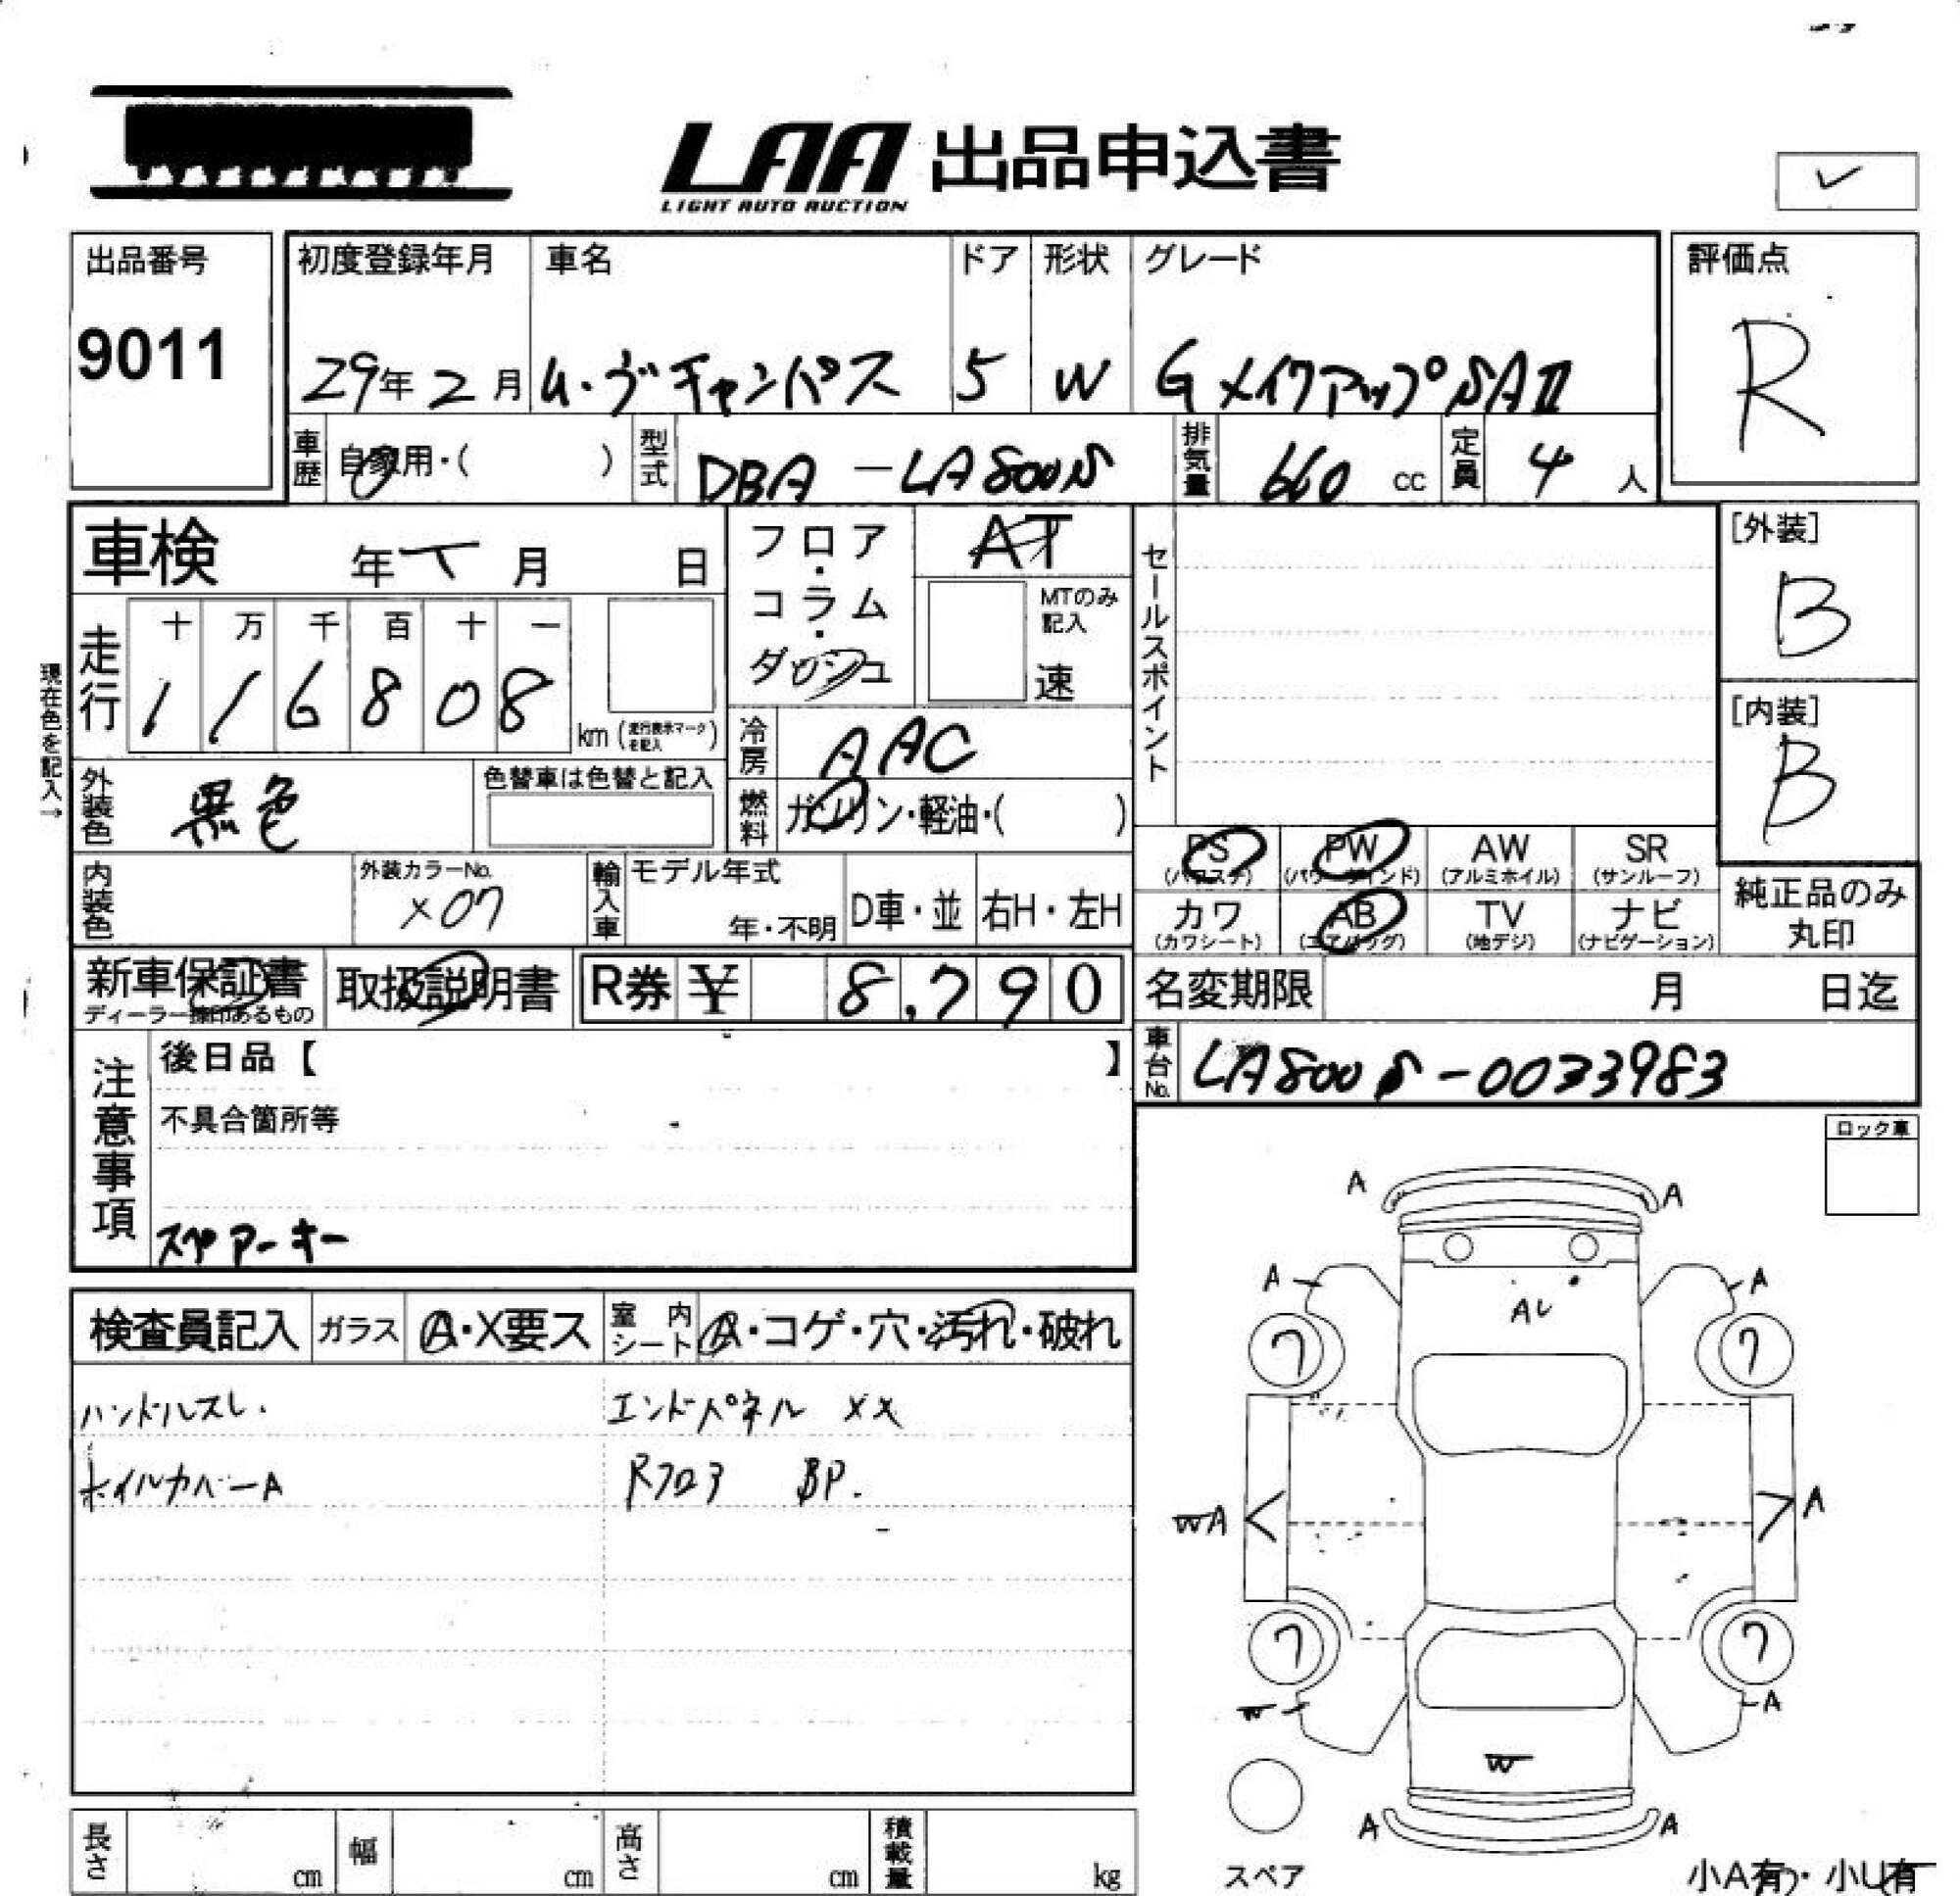 LAA 出品申込書
LIGHT AUTO AUCTION
出品番号
9011
初度登録年月 車名 ドア 形状 グレード
29年2月 ム・ヴキャンバス 5 W GメイクアップSAⅡ
評価点
R
車歴 自家用・( ) 型式 DBA-LA800S 排気量 660 cc 定員 4 人
車検 年 月 日
フロア・コラム・ダッシュ
AT
MTのみ記入
速
セールスポイント
[外装]
B
[内装]
B
現在色を記入→
走行 十 万 千 百 十 一
1 1 6 8 0 8 km (走行表示マークを記入)
冷房 AAC
外装色 黒色 色替車は色替と記入
燃料 ガソリン・軽油・( )
PS (パワステ) PW (パワーウインド) AW (アルミホイル) SR (サンルーフ)
カワ (カワシート) AB (エアバッグ) TV (地デジ) ナビ (ナビゲーション)
純正品のみ丸印
内装色 外装カラーNo. X07 輸入車 モデル年式 年・不明 D車・並 右H・左H
新車保証書 ディーラー捺印あるもの 取扱説明書 R券 ¥ 8,790
名変期限 月 日迄
車台No. LA800S-0033983
注意事項
後日品【 】
不具合箇所等
スペアーキー
ロック車
検査員記入 ガラス A・X要ス 室内シート A・コゲ・穴・汚れ・破れ
ハンドルスレ. エンドパネル XX
ホイルカバーA Rフロア BP.
A A
A A
AU
7 7
WA A
7 7
W A
W
A A
スペア
小A有・小U有
長さ cm 幅 cm 高さ cm 積載量 kg